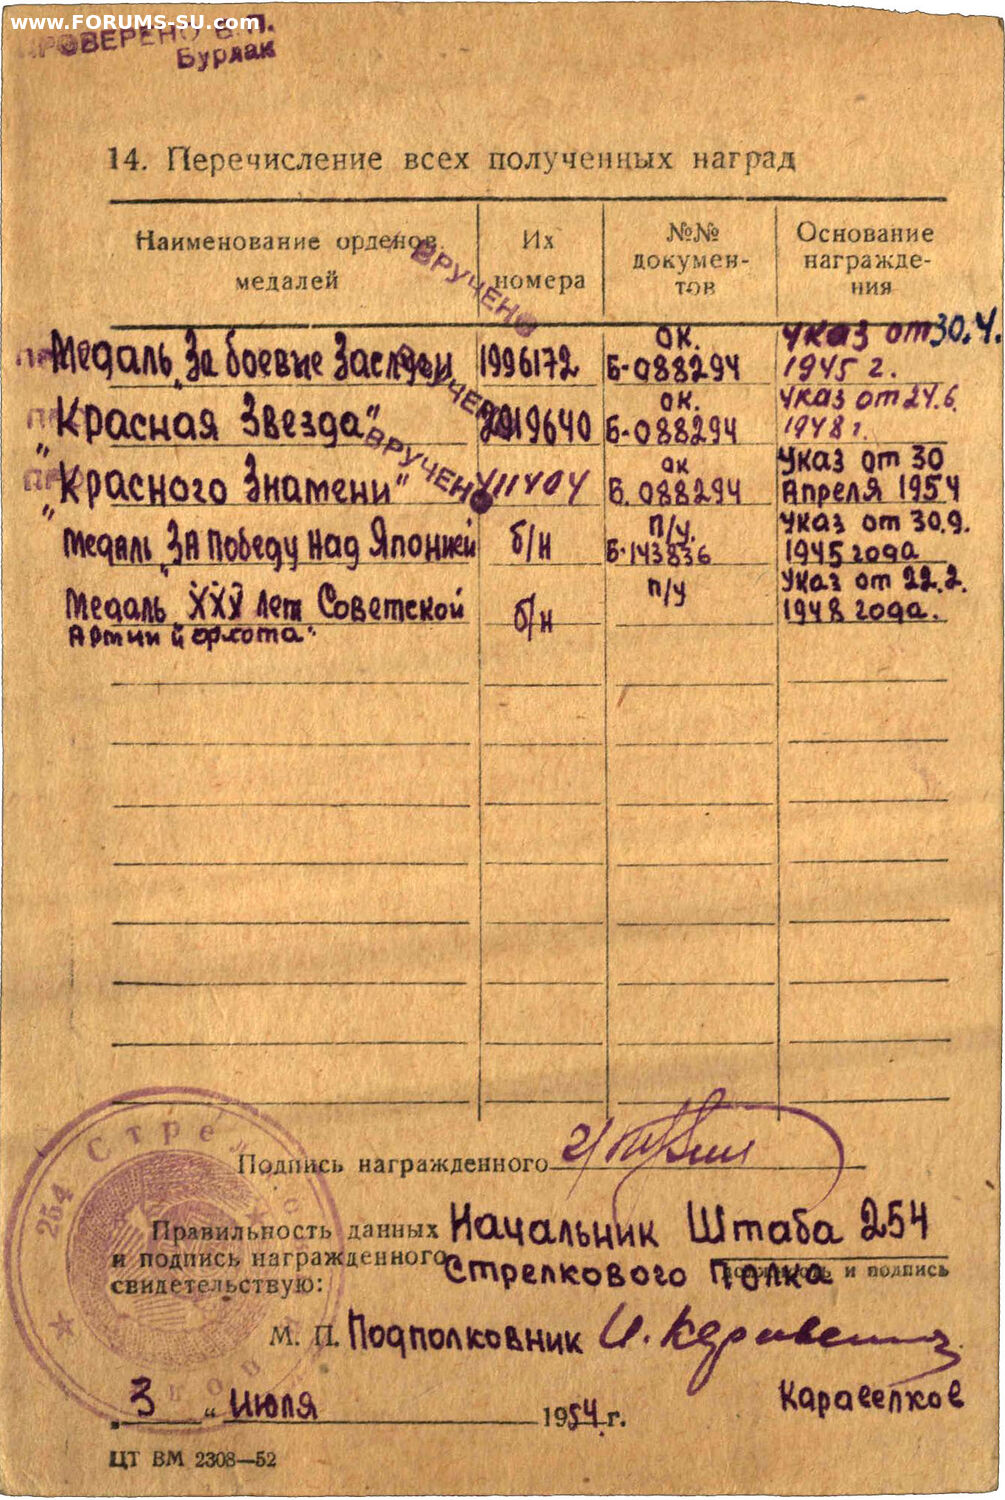 www.FORUMS-su.com
ПРОВЕРЕНО В П.
Бурлак
14. Перечисление всех полученных наград
Наименование орденов, медалей
Их номера
№№ документов
Основание награждения
ВРУЧЕНО
Медаль „За боевые Заслуги 1996172 ОК. Б-088294 Указ от 30.4. 1945 г.
ВРУЧЕНО
„Красная Звезда" 2919640 ок. Б-088294 Указ от 24.6. 1948 г.
ВРУЧЕНО
„Красного Знамени" 411404 ок Б. 088294 Указ от 30 Апреля 1954
Медаль „ЗА Победу над Японией б/н п/у. Б-143836 Указ от 30.9. 1945 года
Медаль „XXX лет Советской б/н п/у Указ от 22.2. 1948 года.
Армии и флота".
254 Стрел
Подпись награжденного
Правильность данных и подпись награжденного свидетельствую:
Начальник Штаба 254
Стрелкового Полка
должность и подпись
М. П. Подполковник
Каравелков
„3" Июля 1954 г.
ЦТ ВМ 2308—52